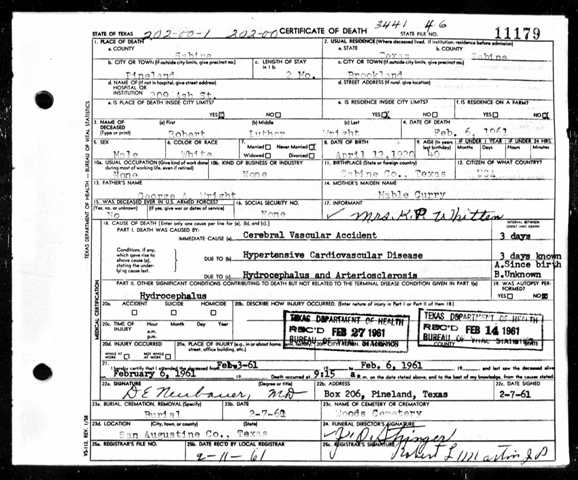 3441 46
STATE OF TEXAS 202-00-1 202-00 CERTIFICATE OF DEATH STATE FILE NO. 11179
1. PLACE OF DEATH 2. USUAL RESIDENCE (Where deceased lived. If institution, residence before admission)
a. COUNTY Sabine a. STATE Texas b. COUNTY Sabine
b. CITY OR TOWN (If outside city limits, give precinct no.) c. LENGTH OF STAY in 1 b c. CITY OR TOWN (If outside city limits, give precinct no.)
Pineland 2 Mo. Brookland
d. NAME OF (If not in hospital, give street address) HOSPITAL OR INSTITUTION 209 Ash St. d. STREET ADDRESS (If rural, give location)
e. IS PLACE OF DEATH INSIDE CITY LIMITS? e. IS RESIDENCE INSIDE CITY LIMITS? f. IS RESIDENCE ON A FARM?
YES NO YES NO YES NO
3. NAME OF DECEASED (Type or print) (a) First (b) Middle (c) Last 4. DATE OF DEATH
Robert Luther Wright Feb. 6, 1961
5. SEX 6. COLOR OR RACE 7. Married Never Married Widowed Divorced 8. DATE OF BIRTH 9. AGE (In years last birthday) IF UNDER 1 YEAR IF UNDER 24 HRS.
Male White April 12, 1920 40 Months Days Hours Minutes
10a. USUAL OCCUPATION (Give kind of work done during most of working life, even if retired) 10b. KIND OF BUSINESS OR INDUSTRY 11. BIRTHPLACE (State or foreign country) 12. CITIZEN OF WHAT COUNTRY?
None None Sabine Co., Texas USA
13. FATHER'S NAME 14. MOTHER'S MAIDEN NAME
George A. Wright Mable Curry
15. WAS DECEASED EVER IN U.S. ARMED FORCES? 16. SOCIAL SECURITY NO. 17. INFORMANT
(Yes, no, or unknown) (If yes, give war or dates of service)
No None Mrs. K.P. Whitten
18. CAUSE OF DEATH (Enter only one cause per line for (a), (b), and (c).) INTERVAL BETWEEN ONSET AND DEATH
PART I. DEATH WAS CAUSED BY:
IMMEDIATE CAUSE (a) Cerebral Vascular Accident 3 days
Conditions, if any, which gave rise to above cause (a), stating the underlying cause last.
DUE TO (b) Hypertensive Cardiovascular Disease 3 days known
A. Since birth
DUE TO (c) Hydrocephalus and Arteriosclerosis B. Unknown
PART II. OTHER SIGNIFICANT CONDITIONS CONTRIBUTING TO DEATH BUT NOT RELATED TO THE TERMINAL DISEASE CONDITION GIVEN IN PART I(a) 19. WAS AUTOPSY PERFORMED?
Hydrocephalus YES NO
20a. ACCIDENT SUICIDE HOMICIDE 20b. DESCRIBE HOW INJURY OCCURRED. (Enter nature of injury in Part I or Part II of item 18.)
20c. TIME OF INJURY Hour Month Day Year a.m. p.m.
TEXAS DEPARTMENT OF HEALTH
REC'D FEB 27 1961
BUREAU OF VITAL STATISTICS
TEXAS DEPARTMENT OF HEALTH
REC'D FEB 14 1961
BUREAU OF VITAL STATISTICS
20d. INJURY OCCURRED WHILE AT WORK NOT WHILE AT WORK 20e. PLACE OF INJURY (e.g., in or about home, farm, factory, street, office building, etc.) COUNTY
21. I hereby certify that I attended the deceased from Feb. 3-61 to Feb. 6, 1961 and last saw the deceased alive
February 6, 1961 Death occurred at 9:15 a m. on the date stated above, and to the best of my knowledge, from the causes stated.
22a. SIGNATURE (Degree or title) 22b. ADDRESS 22c. DATE SIGNED
D E Neubauer, MD Box 206, Pineland, Texas 2-7-61
23a. BURIAL, CREMATION, REMOVAL (Specify) 23b. DATE 23c. NAME OF CEMETERY OR CREMATORY
Burial 2-7-61 Woods Cemetery
23d. LOCATION (City, town, or county) (State) 24. FUNERAL DIRECTOR'S SIGNATURE
San Augustine Co., Texas
25a. REGISTRAR'S FILE NO. 25b. DATE REC'D BY LOCAL REGISTRAR 25c. REGISTRAR'S SIGNATURE
2-11-61 Robert L Martin J.P.
TEXAS DEPARTMENT OF HEALTH — BUREAU OF VITAL STATISTICS
MEDICAL CERTIFICATION
VS-112, REV. 1/58